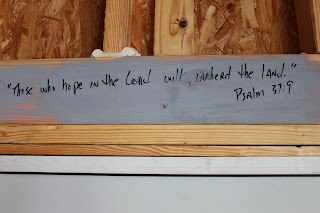 "Those who hope in the Lord will inherit the land."
Psalm 37:9